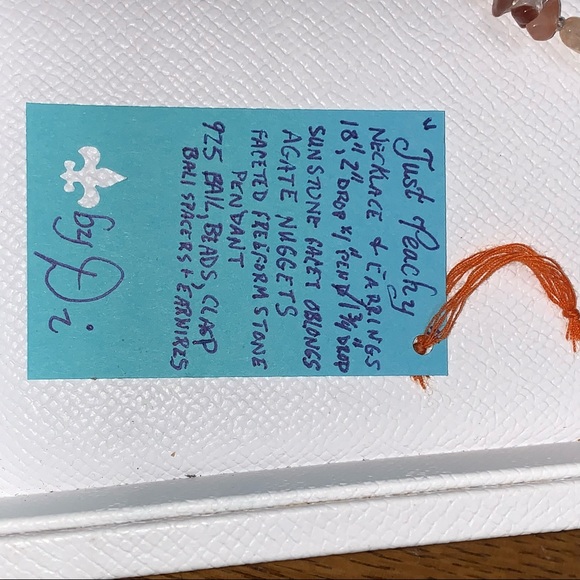 "Just Peachy
NECKLACE & EARRINGS
18", 2" DROP w/ PEN / 1 3/4" DROP
SUNSTONE FACET OBLONGS
AGATE NUGGETS
FACETED FREEFORM STONE
PENDANT
925 BAIL, BEADS, CLASP
BALI SPACERS + EARWIRES
by Di